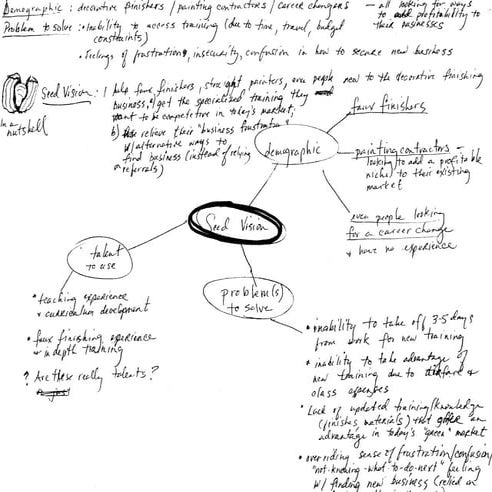 Demographic: decorative finishers / painting contractors / career changers
— all looking for ways
to add profitability to
their businesses
Problem to solve: • Inability to access training (due to time, travel, budget
constraints)
• Feelings of frustration, insecurity, confusion in how to secure new business
In a
nutshell
Seed Vision: I help faux finishers, straight painters, even people new to the decorative finishing
business, a) get the specialized training they
want to be competitive in today's market;
b) relieve their "business frustration"
w/ alternative ways to
find business (instead of relying
on referrals)
demographic
faux finishers
painting contractors -
looking to add a profitable
niche to their existing
market
even people looking
for a career change
& have no experience
Seed Vision
talent
to use
• teaching experience
& curriculum development
• faux finishing experience
& in depth training
? Are these really talents?
problem(s)
to solve
• inability to take off 3-5 days
from work for new training
• inability to take advantage of
new training due to airfare &
class expenses
• Lack of updated training/knowledge
(finishes, materials) that offer an
advantage in today's "green" market
• over riding sense of frustration/confusion/
"not-knowing-what-to-do-next" feeling
w/ finding new business (relied on